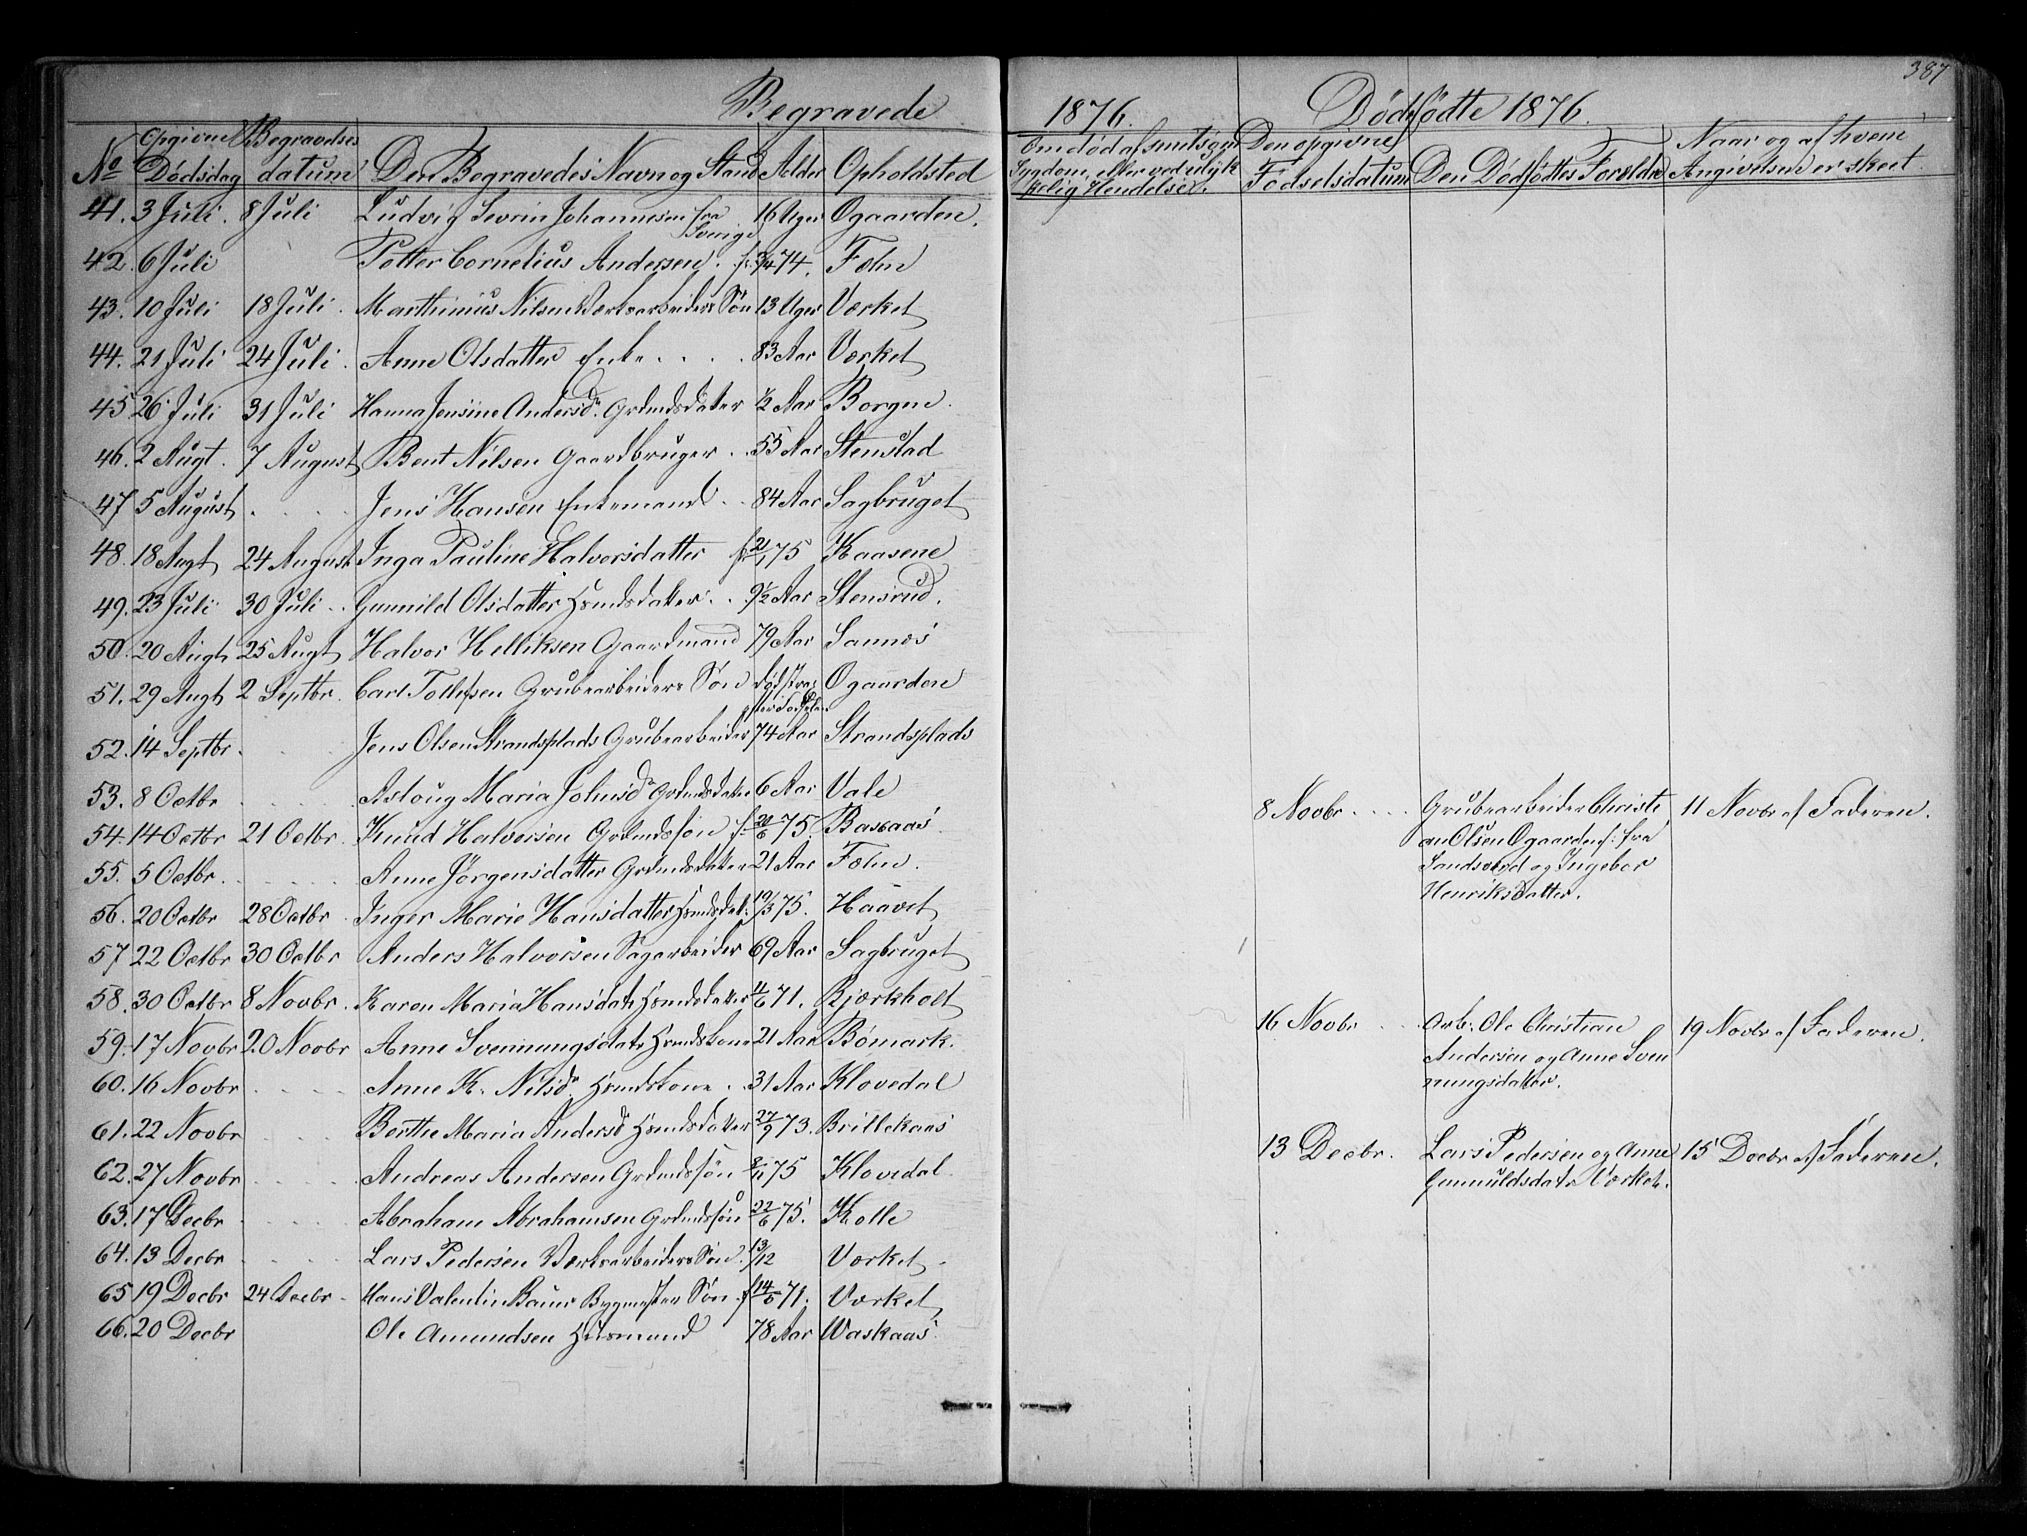 387
Begravede 1876. Dødfødte 1876.
No Opgivne Dødsdag Begravelses datum Den Begravedes Navn og Stand Alder Opholdsted
Om død af smitsom Sygdom, eller ved ulyk kelig Hendelse. Den opgivne Fødselsdatum Den Dødfødtes Forældre Naar og af hvem Angivelsen er skeet.
41. 3 Juli. 8 Juli Ludvig Sevrin Johannesen fra Sverige 16 Uger Ogaarden.
42. 6 Juli Petter Cornelius Andersen. 74. Foln
43. 10 Juli 18 Juli. Marthinius Nilsen Værksarbeiders Søn 13 Uger Værket
44. 21 Juli 24 Juli. Anne Olsdatter Enke . . . . 83 Aar Værket
45 26 Juli 31 Juli Hanna Jensine Andersd. Grdmdsdatter ½ Aar Borgen.
46. 2 Augt. 7 August Bent Nilsen Gaardbruger . . 55 Aar Stenstad
47 5 August . . . Jens Hansen Enkemand . . 84 Aar Sagbruget
48. 18 Augt 24 August Inga Pauline Halvorsdatter f. 21/1 75 Kaasene
49. 23 Juli 30 Juli . . Gunnild Olsdatter Hsmdsdatter . . 9½ Aar Stensrud.
50. 20 Augt 25 Augt Halvor Helliksen Gaardmand 79 Aar Sannes
51. 29 Augt 2 Septbr. Carl Tollefsen Grubearbeiders Søn død strax efter Fødselen Ogaarden
52. 14 Septbr. . . Jens Olsen Strandsplads Grubearbeider 74 Aar Strandsplads
53. 8 Octbr . . . Asloug Maria Johnsd. Grdmdsdatter 6 Aar Vale
54. 14 Octbr 21 Octbr. Knud Halvorsen Grdmdssøn f. 20/6 75. Baskaas
55. 5 Octbr. . . . Anne Jörgensdatter Grdmdsdatter 21 Aar Foln.
56. 20 Octbr 28 Octbr. Inger Marie Hansdatter Hsmdsdat. 19/3 75. Haavet
57 22 Octbr 30 Octbr Anders Halvorsen Sagarbeider 69 Aar Sagbruget
58. 30 Octbr 8 Novbr. Karen Maria Hansdatr Hsmdsdatter 11/6 71. Bjørkholt
59. 17 Novbr 20 Novbr Anne Svennungsdatr Hsmdskone 21 Aar Bömark.
60. 16 Novbr . . . Anne K. Nilsd. Hsmdskone . . 31 Aar Klovedal
61. 22 Novbr . . . Berthe Maria Andersd Hsmdsdatter 27/9 73. Brillekaas
62. 27 Novbr . . . Andreas Andersen Grdmdssøn 8/11 75 Klovedal
63. 17 Decbr . . . Abraham Abrahamsen Grdmdssøn 22/6 75. Kolle
64. 13 Decbr . . . Lars Pedersen Værksarbeiders Søn. 13/12 Værket.
65 19 Decbr 24 Decbr. Hans Valentin Baur Bygmester Søn f 14/5 71. Værket
66. 20 Decbr Ole Amundsen Husmand 78 Aar Waskaas
8 Novbr . . . . Grubearbeider Christi 11 Novbr af Faderen.
an Olsen Ogaarden f. fra
Sandsverd og Ingebor
Henriksdatter.
16 Novbr . . Arb. Ole Christian 19 Novbr af Faderen.
Andersen og Anne Sven
nungsdatter.
13 Decbr. Lars Pedersen og Anne 15 Decbr af Faderen.
Gunnuldsdatr Værket.